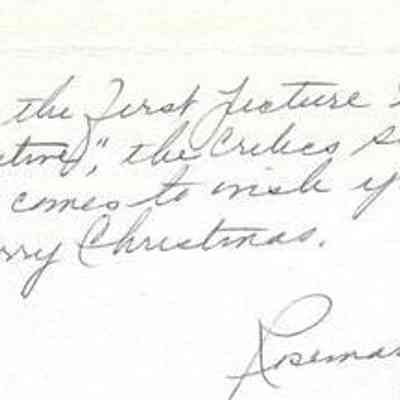 the First Picture
", the Critics s
comes to wish y
rry Christmas.
Rosemar